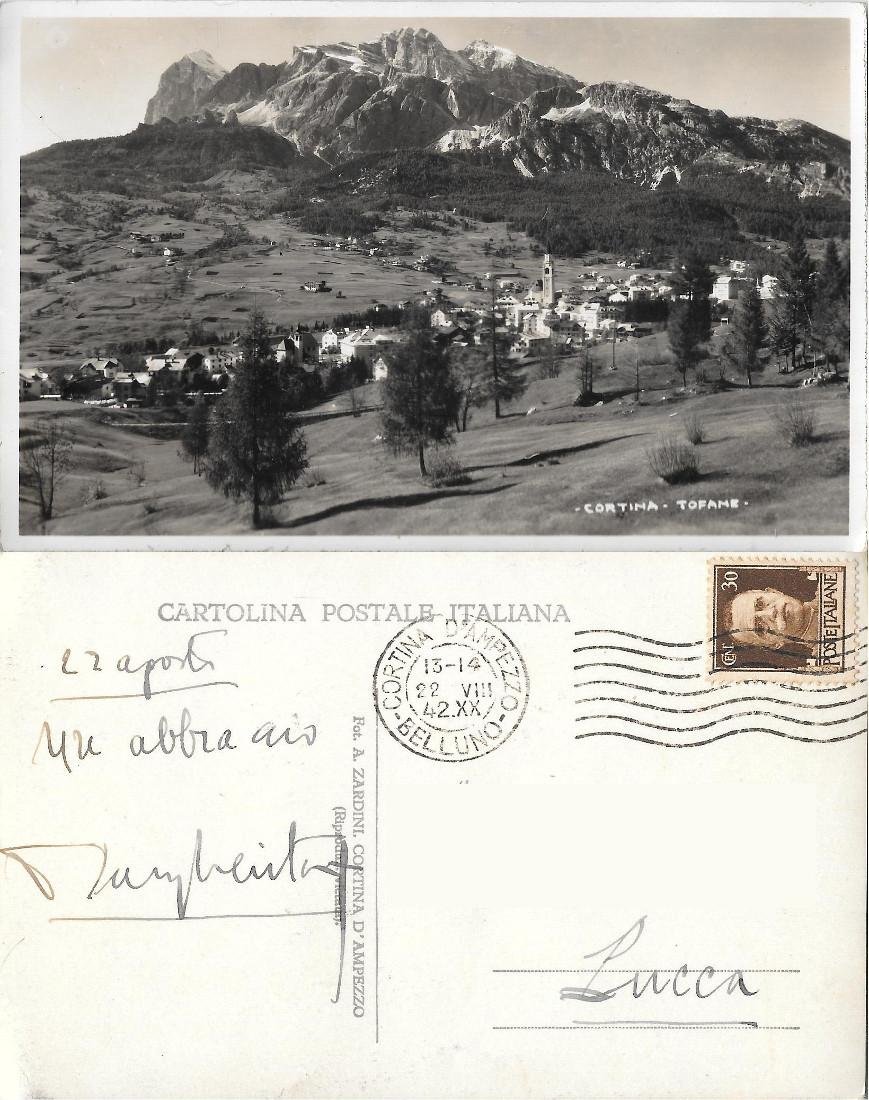 - CORTINA - TOFANE -
CARTOLINA POSTALE ITALIANA
22 agosto
Un abbraccio
Margherita
Fot. A. ZARDINI. CORTINA D'AMPEZZO
CORTINA D'AMPEZZO
13-14
22 VIII
42.XX
- BELLUNO -
30
CENT.
POSTE ITALIANE
Lucca